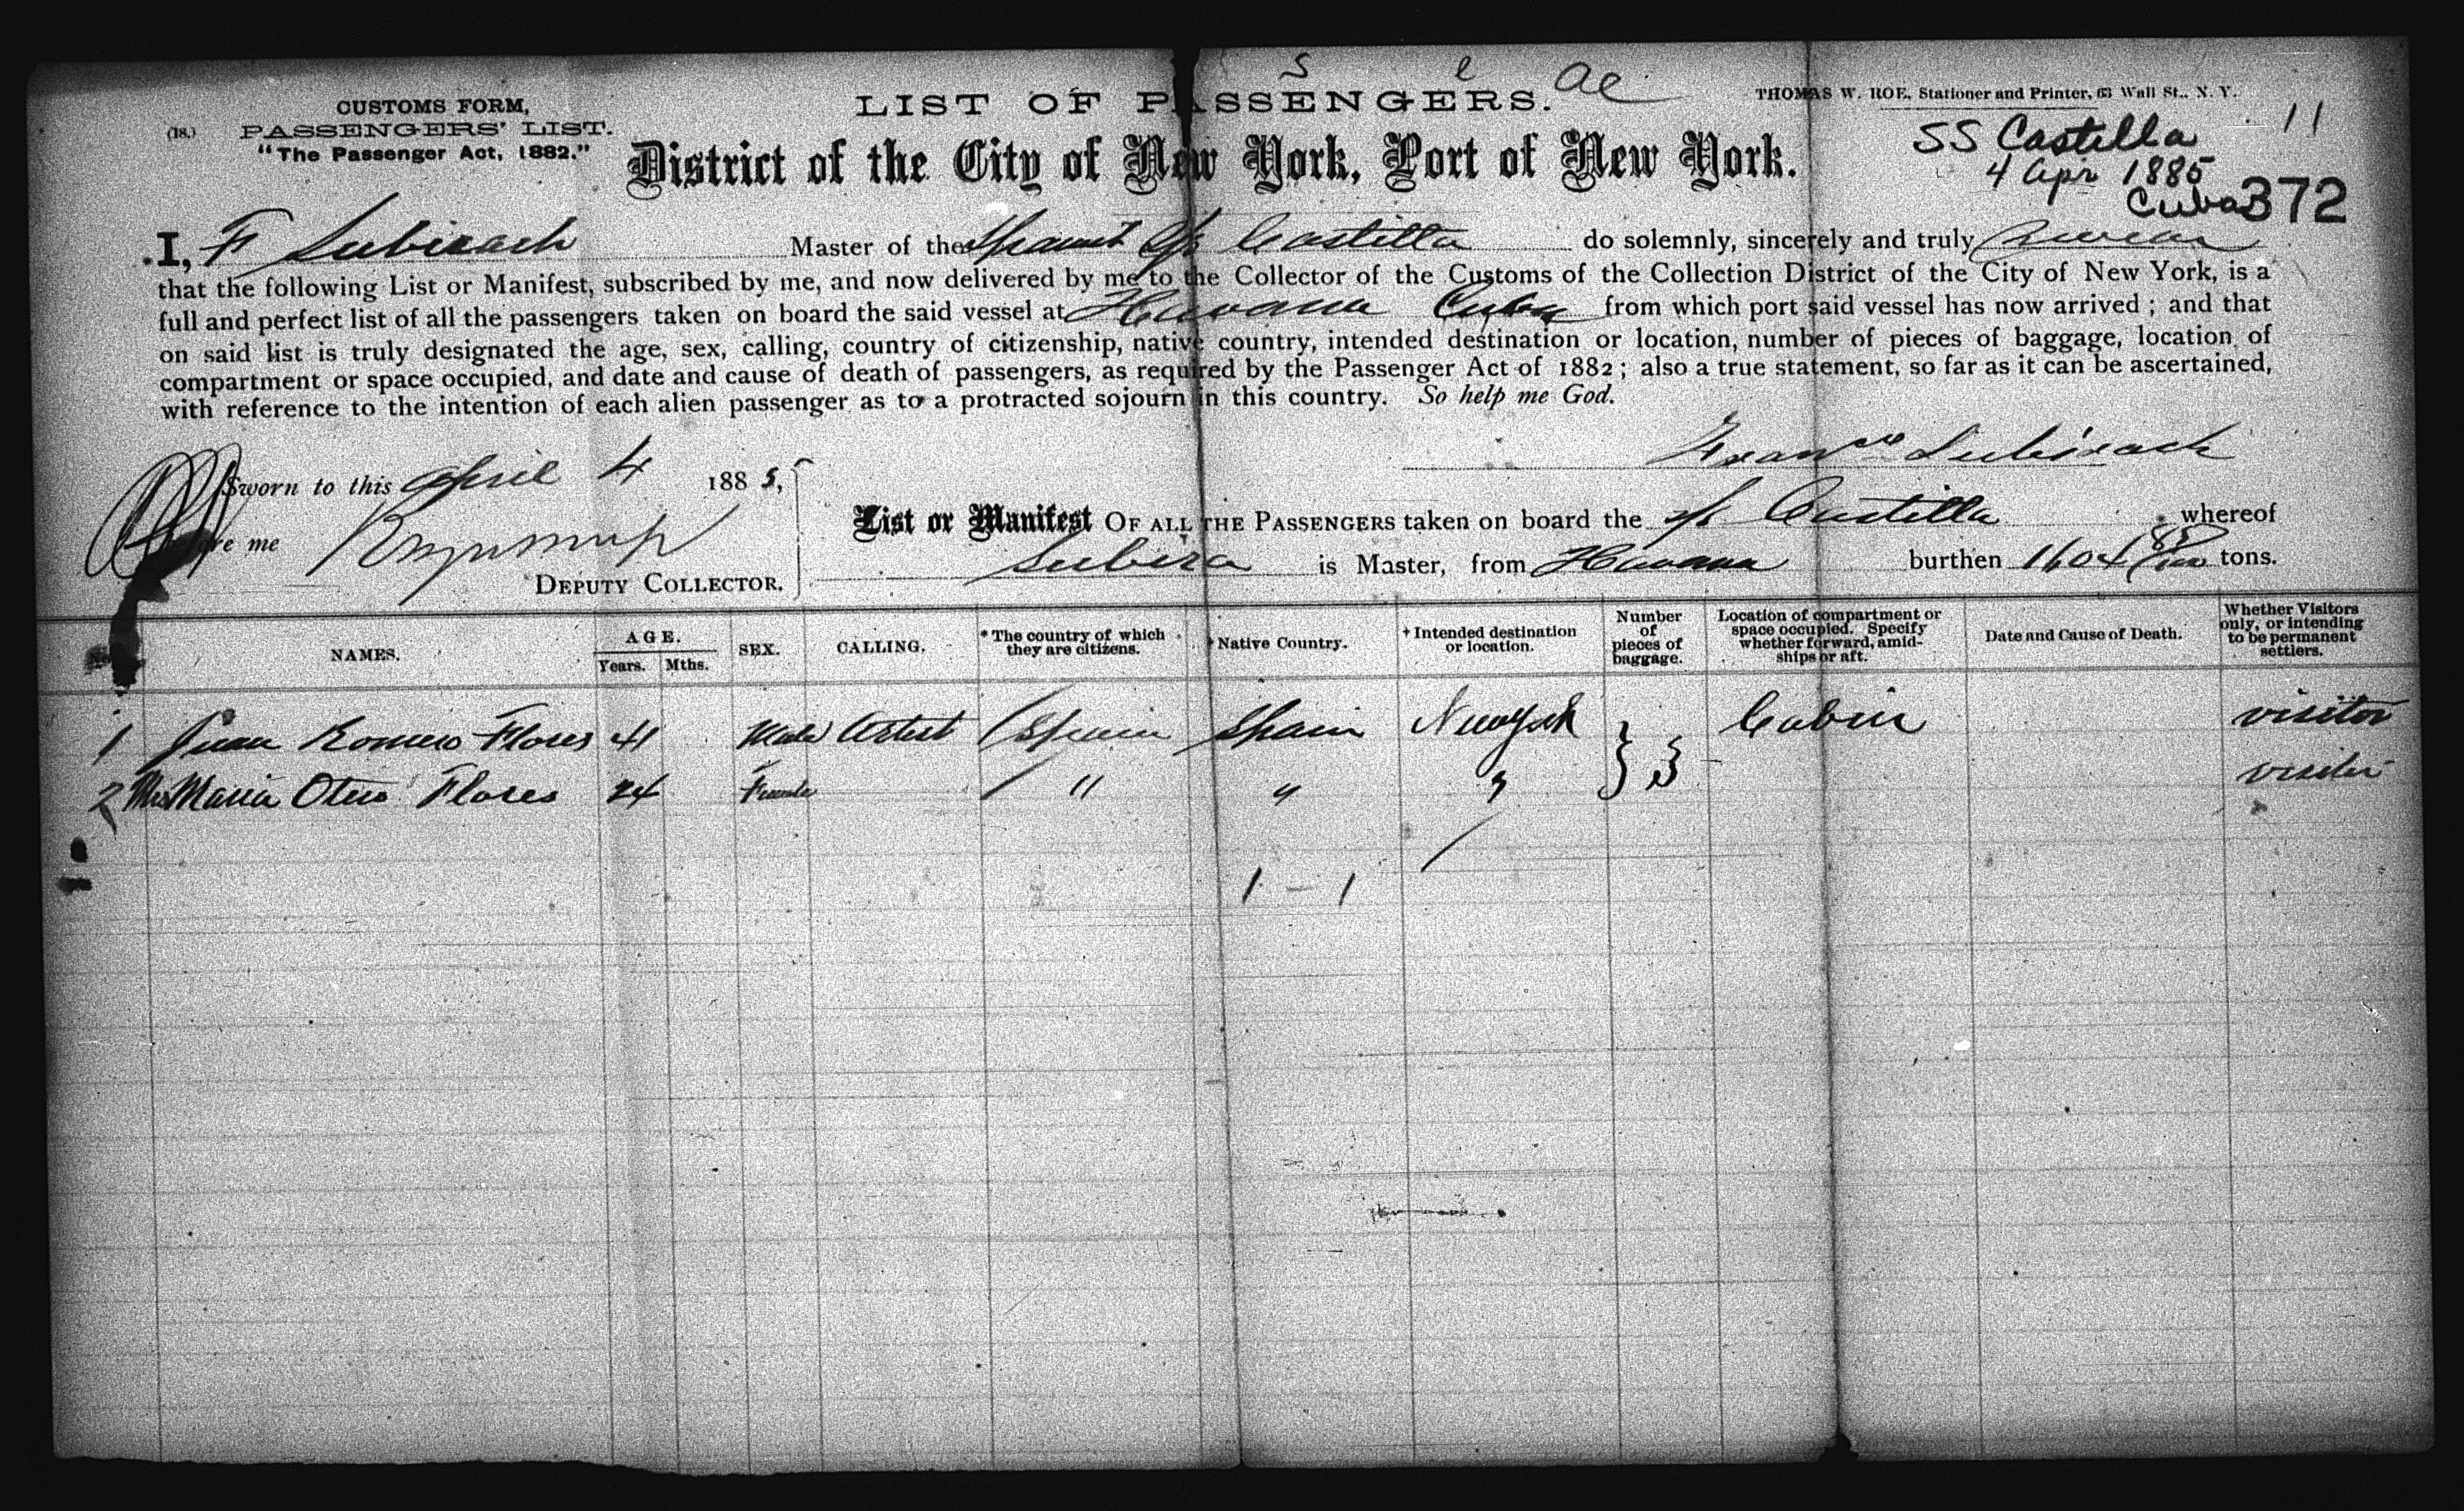 S e ae
CUSTOMS FORM,
(18.) PASSENGERS' LIST.
"The Passenger Act, 1882."
LIST OF PASSENGERS.
THOMAS W. ROE, Stationer and Printer, 63 Wall St., N. Y.
District of the City of New York, Port of New York.
11
SS Castilla
4 Apr 1885
Cuba 372
I, F Subirach Master of the Castilla do solemnly, sincerely and truly swear
that the following List or Manifest, subscribed by me, and now delivered by me to the Collector of the Customs of the Collection District of the City of New York, is a
full and perfect list of all the passengers taken on board the said vessel at Havana Cuba from which port said vessel has now arrived ; and that
on said list is truly designated the age, sex, calling, country of citizenship, native country, intended destination or location, number of pieces of baggage, location of
compartment or space occupied, and date and cause of death of passengers, as required by the Passenger Act of 1882 ; also a true statement, so far as it can be ascertained,
with reference to the intention of each alien passenger as to a protracted sojourn in this country. So help me God.
Franco Subirach
Sworn to this April 4 1885,
before me
DEPUTY COLLECTOR.
List or Manifest OF ALL THE PASSENGERS taken on board the s/s Castilla whereof
Subira is Master, from Havana burthen 1604 tons.
NAMES. AGE. Years. Mths. SEX. CALLING. * The country of which they are citizens. † Native Country. † Intended destination or location. Number of pieces of baggage. Location of compartment or space occupied. Specify whether forward, amidships or aft. Date and Cause of Death. Whether Visitors only, or intending to be permanent settlers.
1 Juan Romero Flores 41 Male Artist Spain Spain New York } 3 Cabin visitor
2 Mrs Maria Otero Flores 24 Female " " " visitor
1 - 1